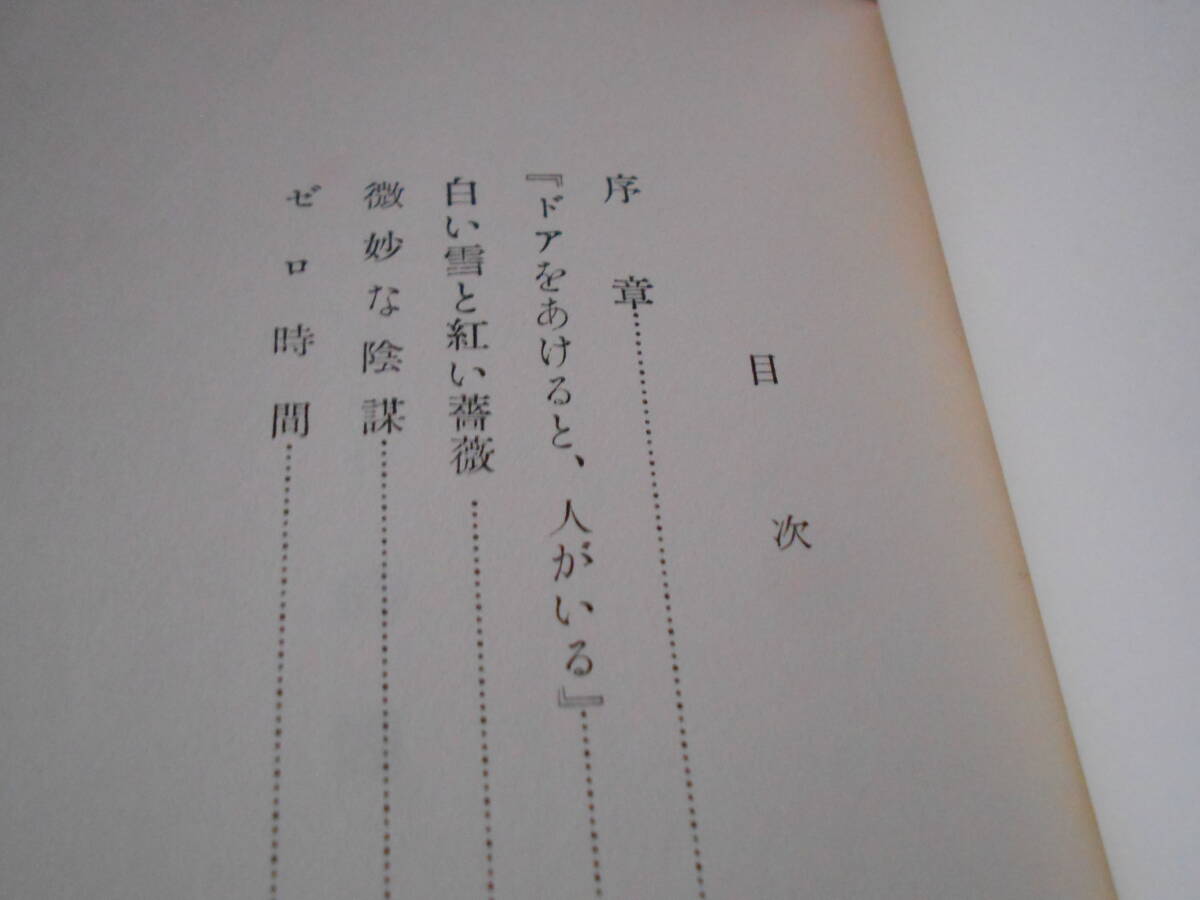 目次
序章
『ドアをあけると、人がいる』
白い雪と紅い薔薇
微妙な陰謀
ゼロ時間